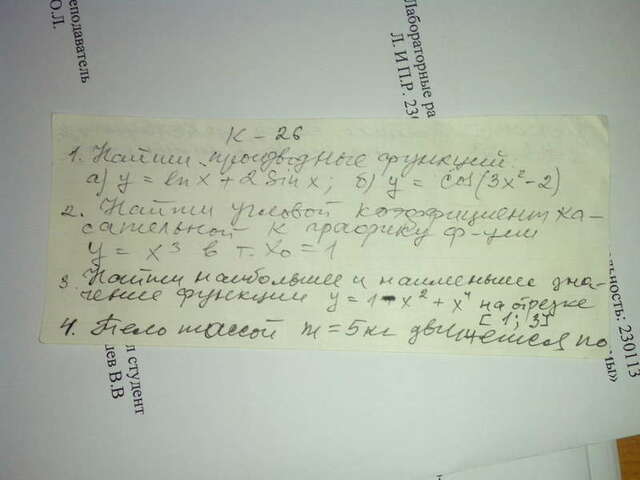 К - 26
1. Найти производные функций
а) y = lnx + 2 sinx; б) y = cos(3x²-2)
2. Найти угловой коэффициент ка-
сательной к графику ф-ции
y = x³ в т. x₀ = 1
3. Найти наибольшее и наименьшее зна-
чение функции y = 1 - x² + x⁴ на отрезке
[1; 3]
4. Тело массой m = 5кг движется по
еподаватель
О.Л.
л студент
цев В.В
Лабораторные ра
Л. И П.Р. 230
льность: 230113
мы»